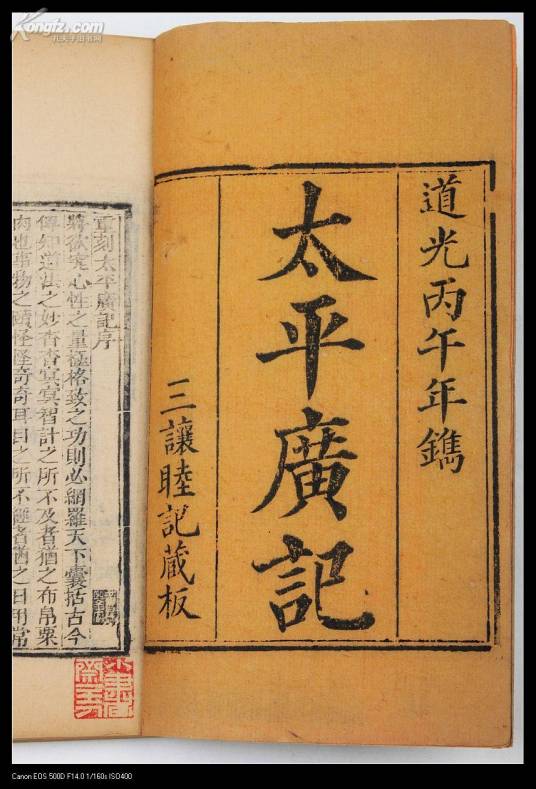 Kongfz.com
孔夫子旧书网
道光丙午年鐫
太平廣記
三讓睦記藏板
重刻太平廣記序
將欲究心性之量極格致之功則必網羅天下囊括古今
俾知道法之妙杳杳冥冥智計之所不及者猶之布帛菽
肉也事物之賾怪怪奇奇耳目之所不經者猶之日用常
Canon EOS 500D F14.0 1/160s ISO400